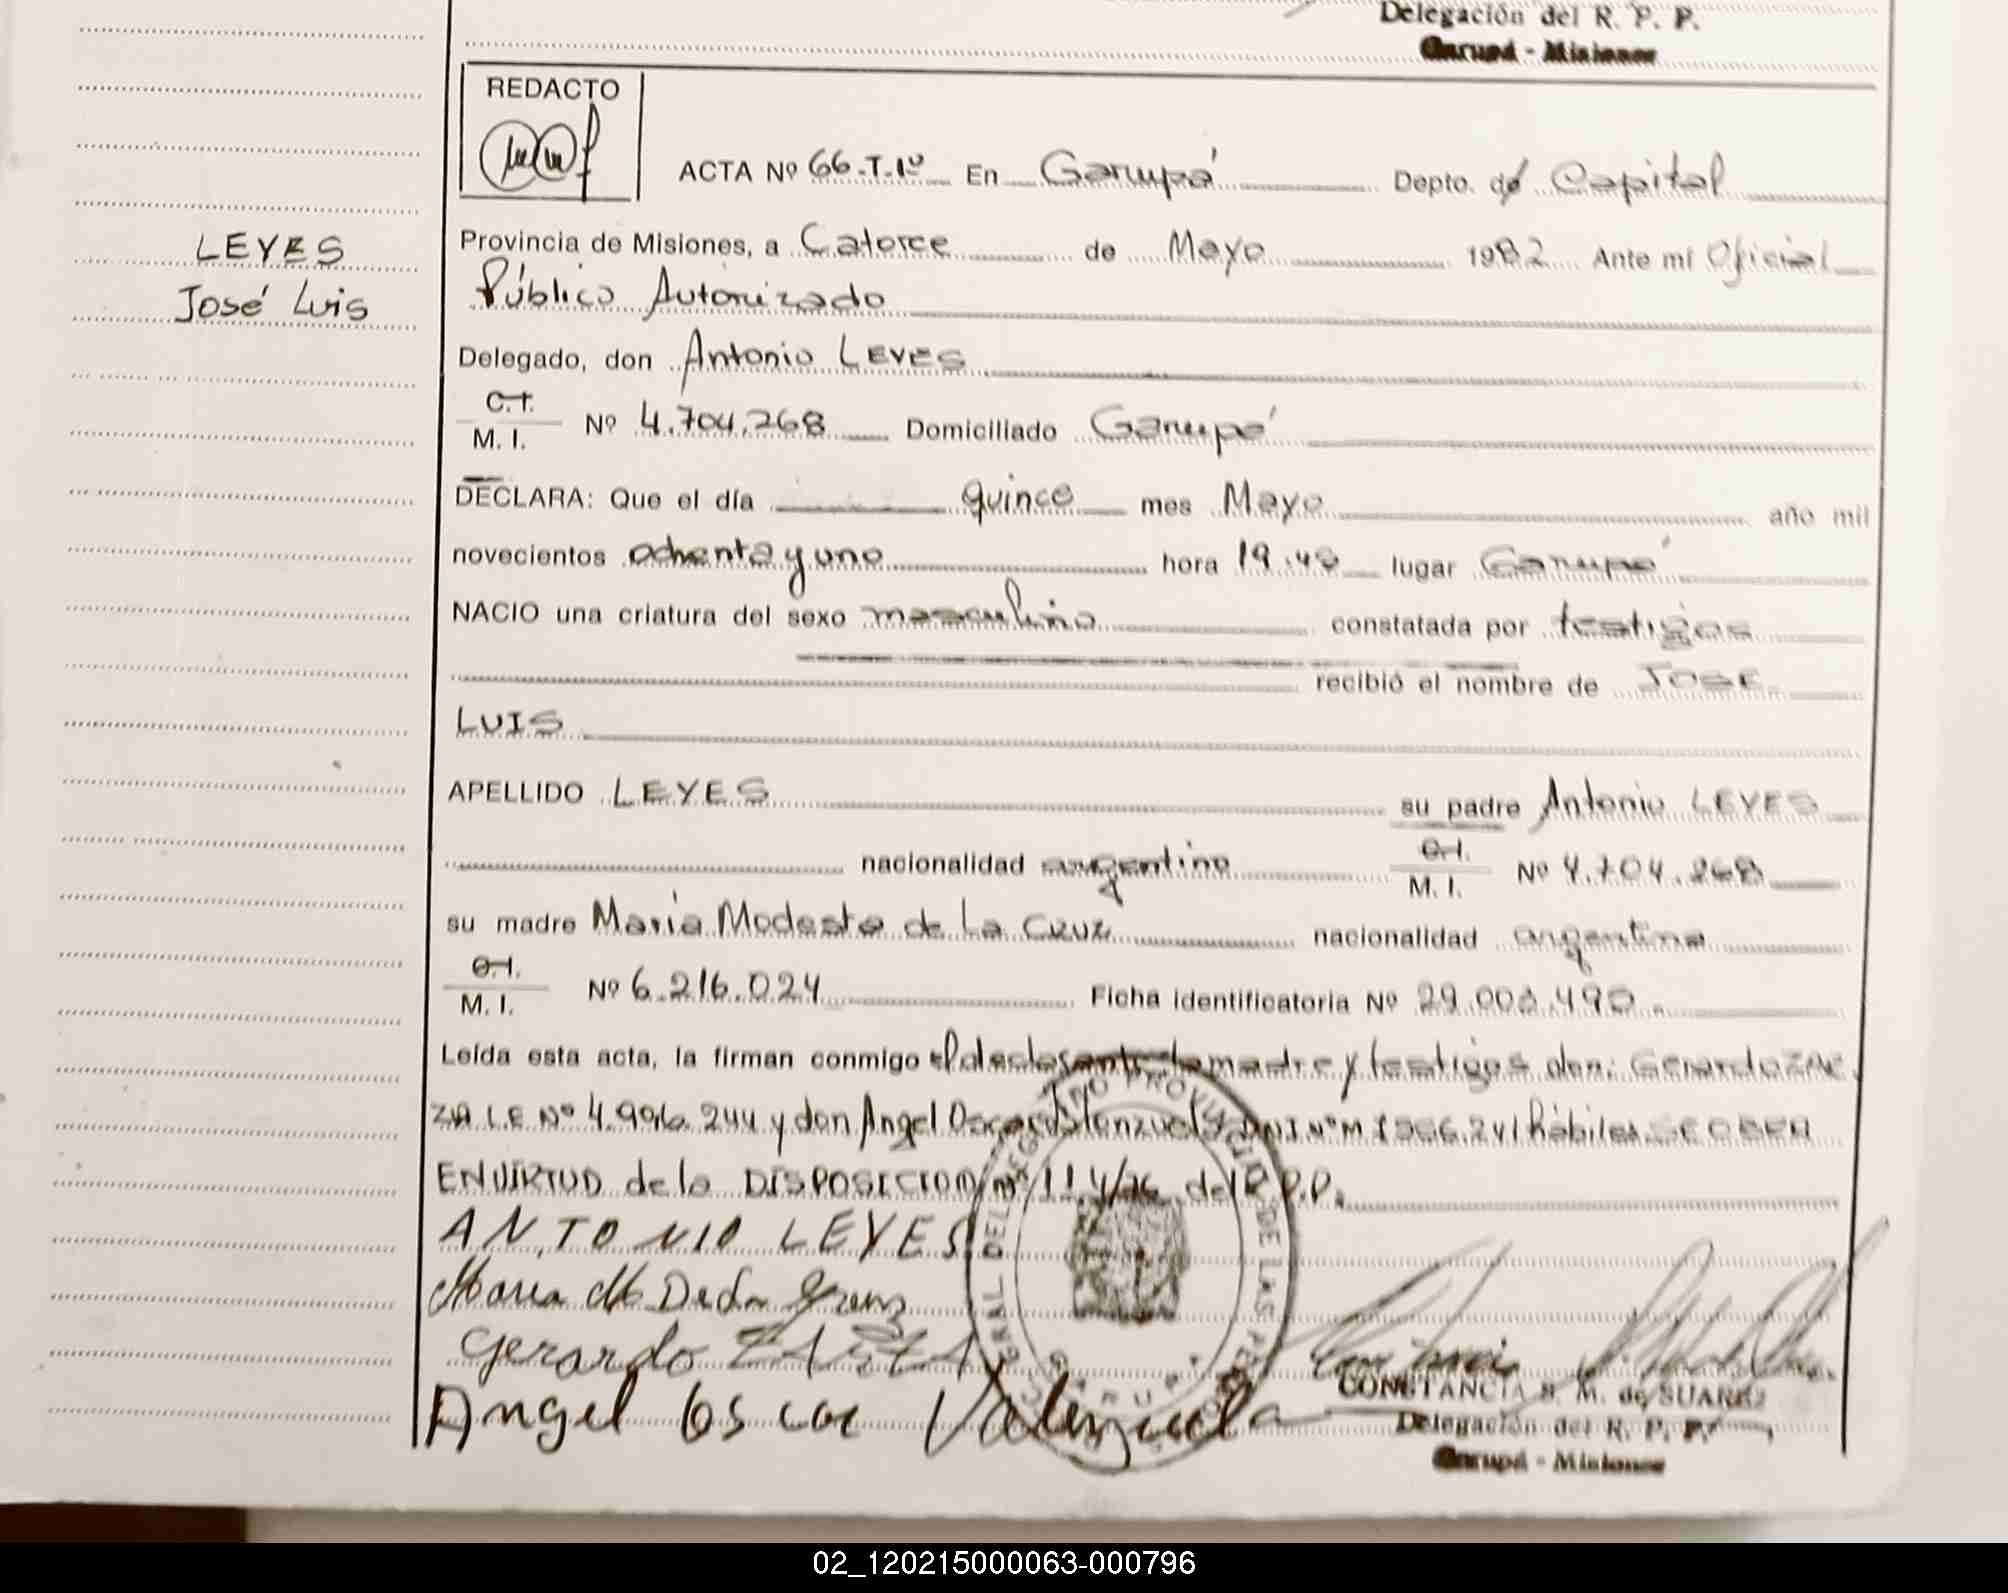 Delegación del R. P. P.
Garupá - Misiones
REDACTO
ACTA Nº 66-T.1º En Garupá Depto. de Capital
LEYES
José Luis
Provincia de Misiones, a Catorce de Mayo 1982 Ante mí Oficial
Público Autorizado
Delegado, don Antonio LEYES
C.I.
M. I. Nº 4.704.268 Domiciliado Garupá
DECLARA: Que el día quince mes Mayo año mil
novecientos ochenta y uno hora 19:40 lugar Garupá
NACIO una criatura del sexo masculino constatada por testigos
recibió el nombre de JOSE
LUIS
APELLIDO LEYES su padre Antonio LEYES
nacionalidad argentino C.I.
M. I. Nº 4.704.268
su madre Maria Modesta de La Cruz nacionalidad argentina
C.I.
M. I. Nº 6.216.024 Ficha identificatoria Nº 29.008.490.
Leída esta acta, la firman conmigo el declarante la madre y testigos don: Gerardo
L.E Nº 4.996.244 y don Angel Oscar Valenzuela DNI Nº M hábiles. SE OBRA
EN VIRTUD de la DISPOSICION nº 114/76 del R.P.P.
ANTONIO LEYES
Maria M De La Cruz
Gerardo
Angel Oscar Valenzuela
CONSTANCIA S. M. de SUAREZ
Delegación del R. P. P.
Garupá - Misiones
02_120215000063-000796